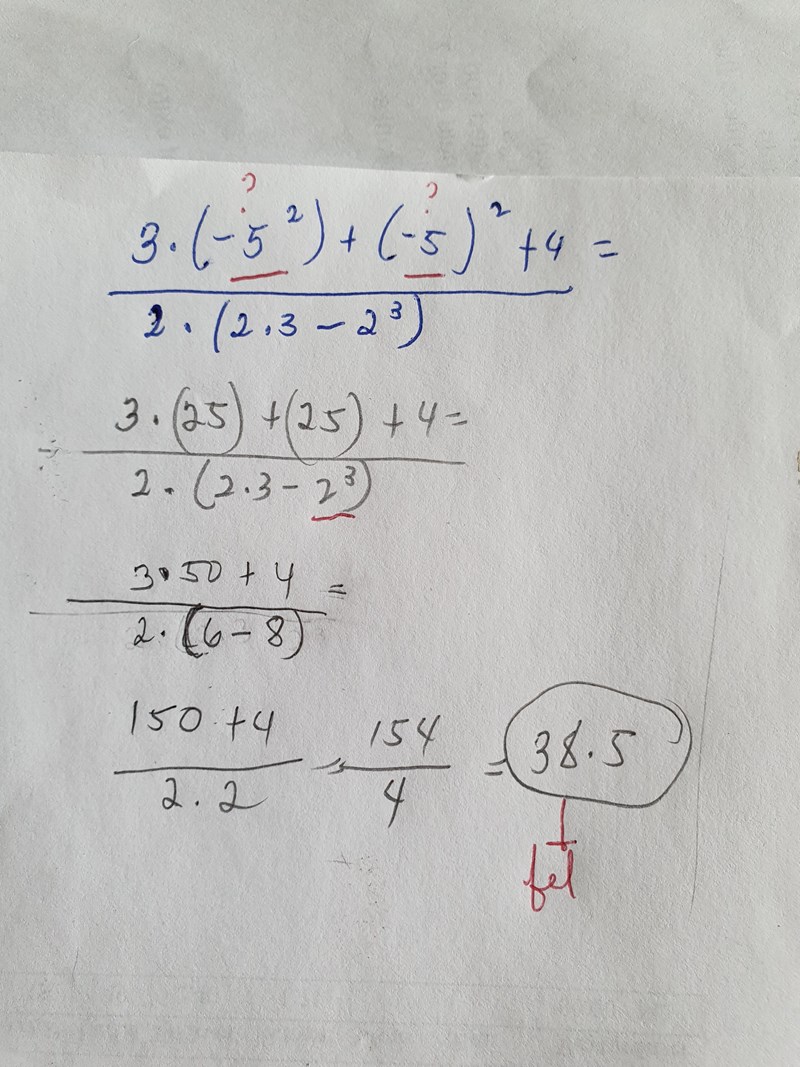 ? ?
3·(-5²)+(-5)²+4 =
2·(2·3-2³)
÷ 3·(25)+(25)+4=
2·(2·3-2³)
3·50+4 =
2·(6-8)
150+4 = 154 = 38.5
2·2 4
fel